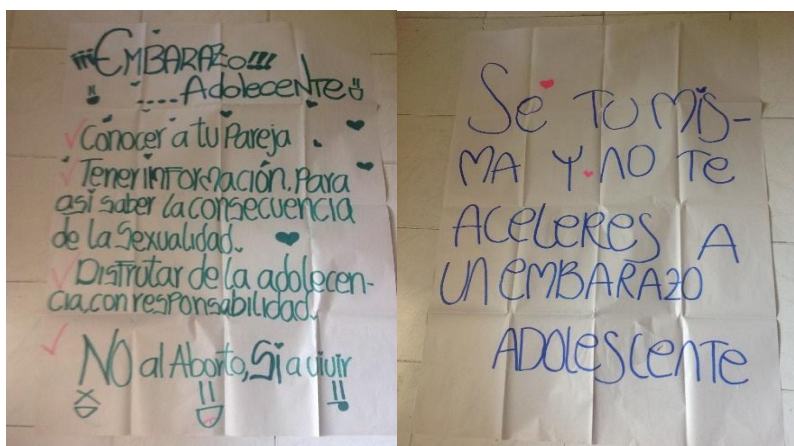 ¡¡¡EMBARAZO!!!
.....Adolecente
Conocer a tu Pareja
Tener información. Para
así saber la consecuencia
de la Sexualidad.
Disfrutar de la adolecen-
cia, con responsabilidad.
NO al Aborto, Si a vivir
Sé TU MIS-
MA Y NO Te
ACELERES A
UN EMBARAZO
ADOLESCENTE